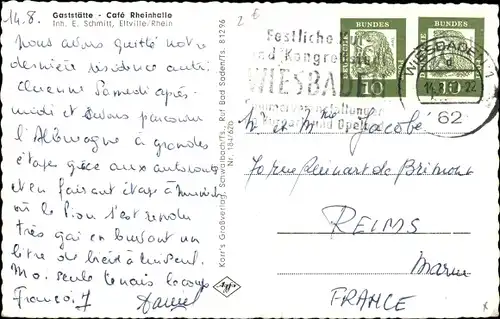 14.8.
Gaststätte - Café Rheinhalle
Inh. E. Schmitt, Eltville/Rhein
Nous avons quitté notre
dernière résidence autri
chienne Samedi après-
midi et avons parcouru
l'Allemagne à grandes
étapes grâce aux autoroutes
et en faisant étape à Munich
où le Pion s'est rendu
très gai en buvant un
litre de bière à lui seul.
seule tenais le coup
François
Daniel
Korr's Großverlag, Schwalbach/Ts. Ruf Bad Soden/Ts. 81296
Nr. 184/626
Agfa
2 €
Festliche Kur
und Kongreßstadt
WIESBADEN
Sommerveranstaltungen
Operette
DEUTSCHE BUNDESPOST
10
DEUTSCHE BUNDESPOST
10
WIESBADEN 1
d
14.8. -22
62
M et Mme Jacobé
70 rue Reinart de Brimont
REIMS
Marne
FRANCE